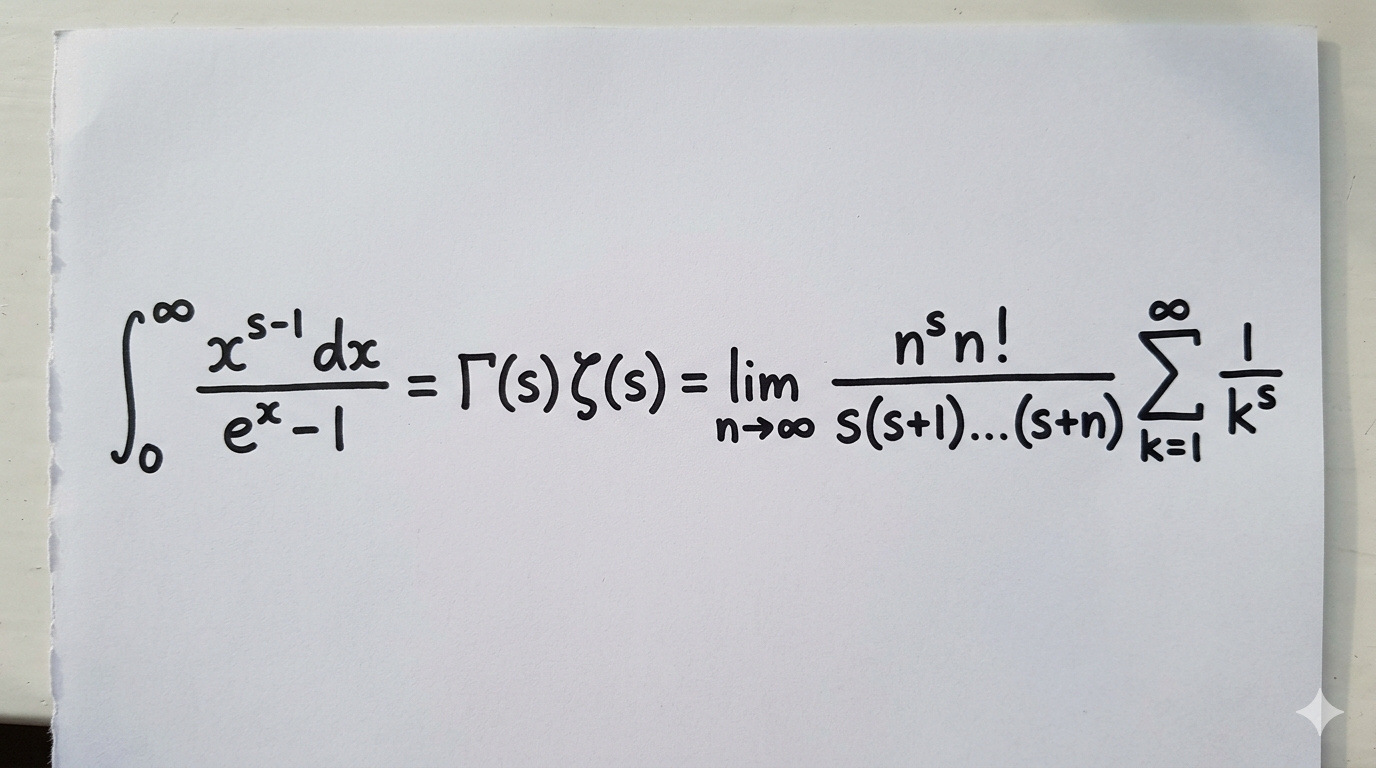 ∫₀^∞ x^{s-1} dx / (e^x - 1) = Γ(s) ζ(s) = lim_{n→∞} n^s n! / (s(s+1)...(s+n)) ∑_{k=1}^∞ 1/k^s